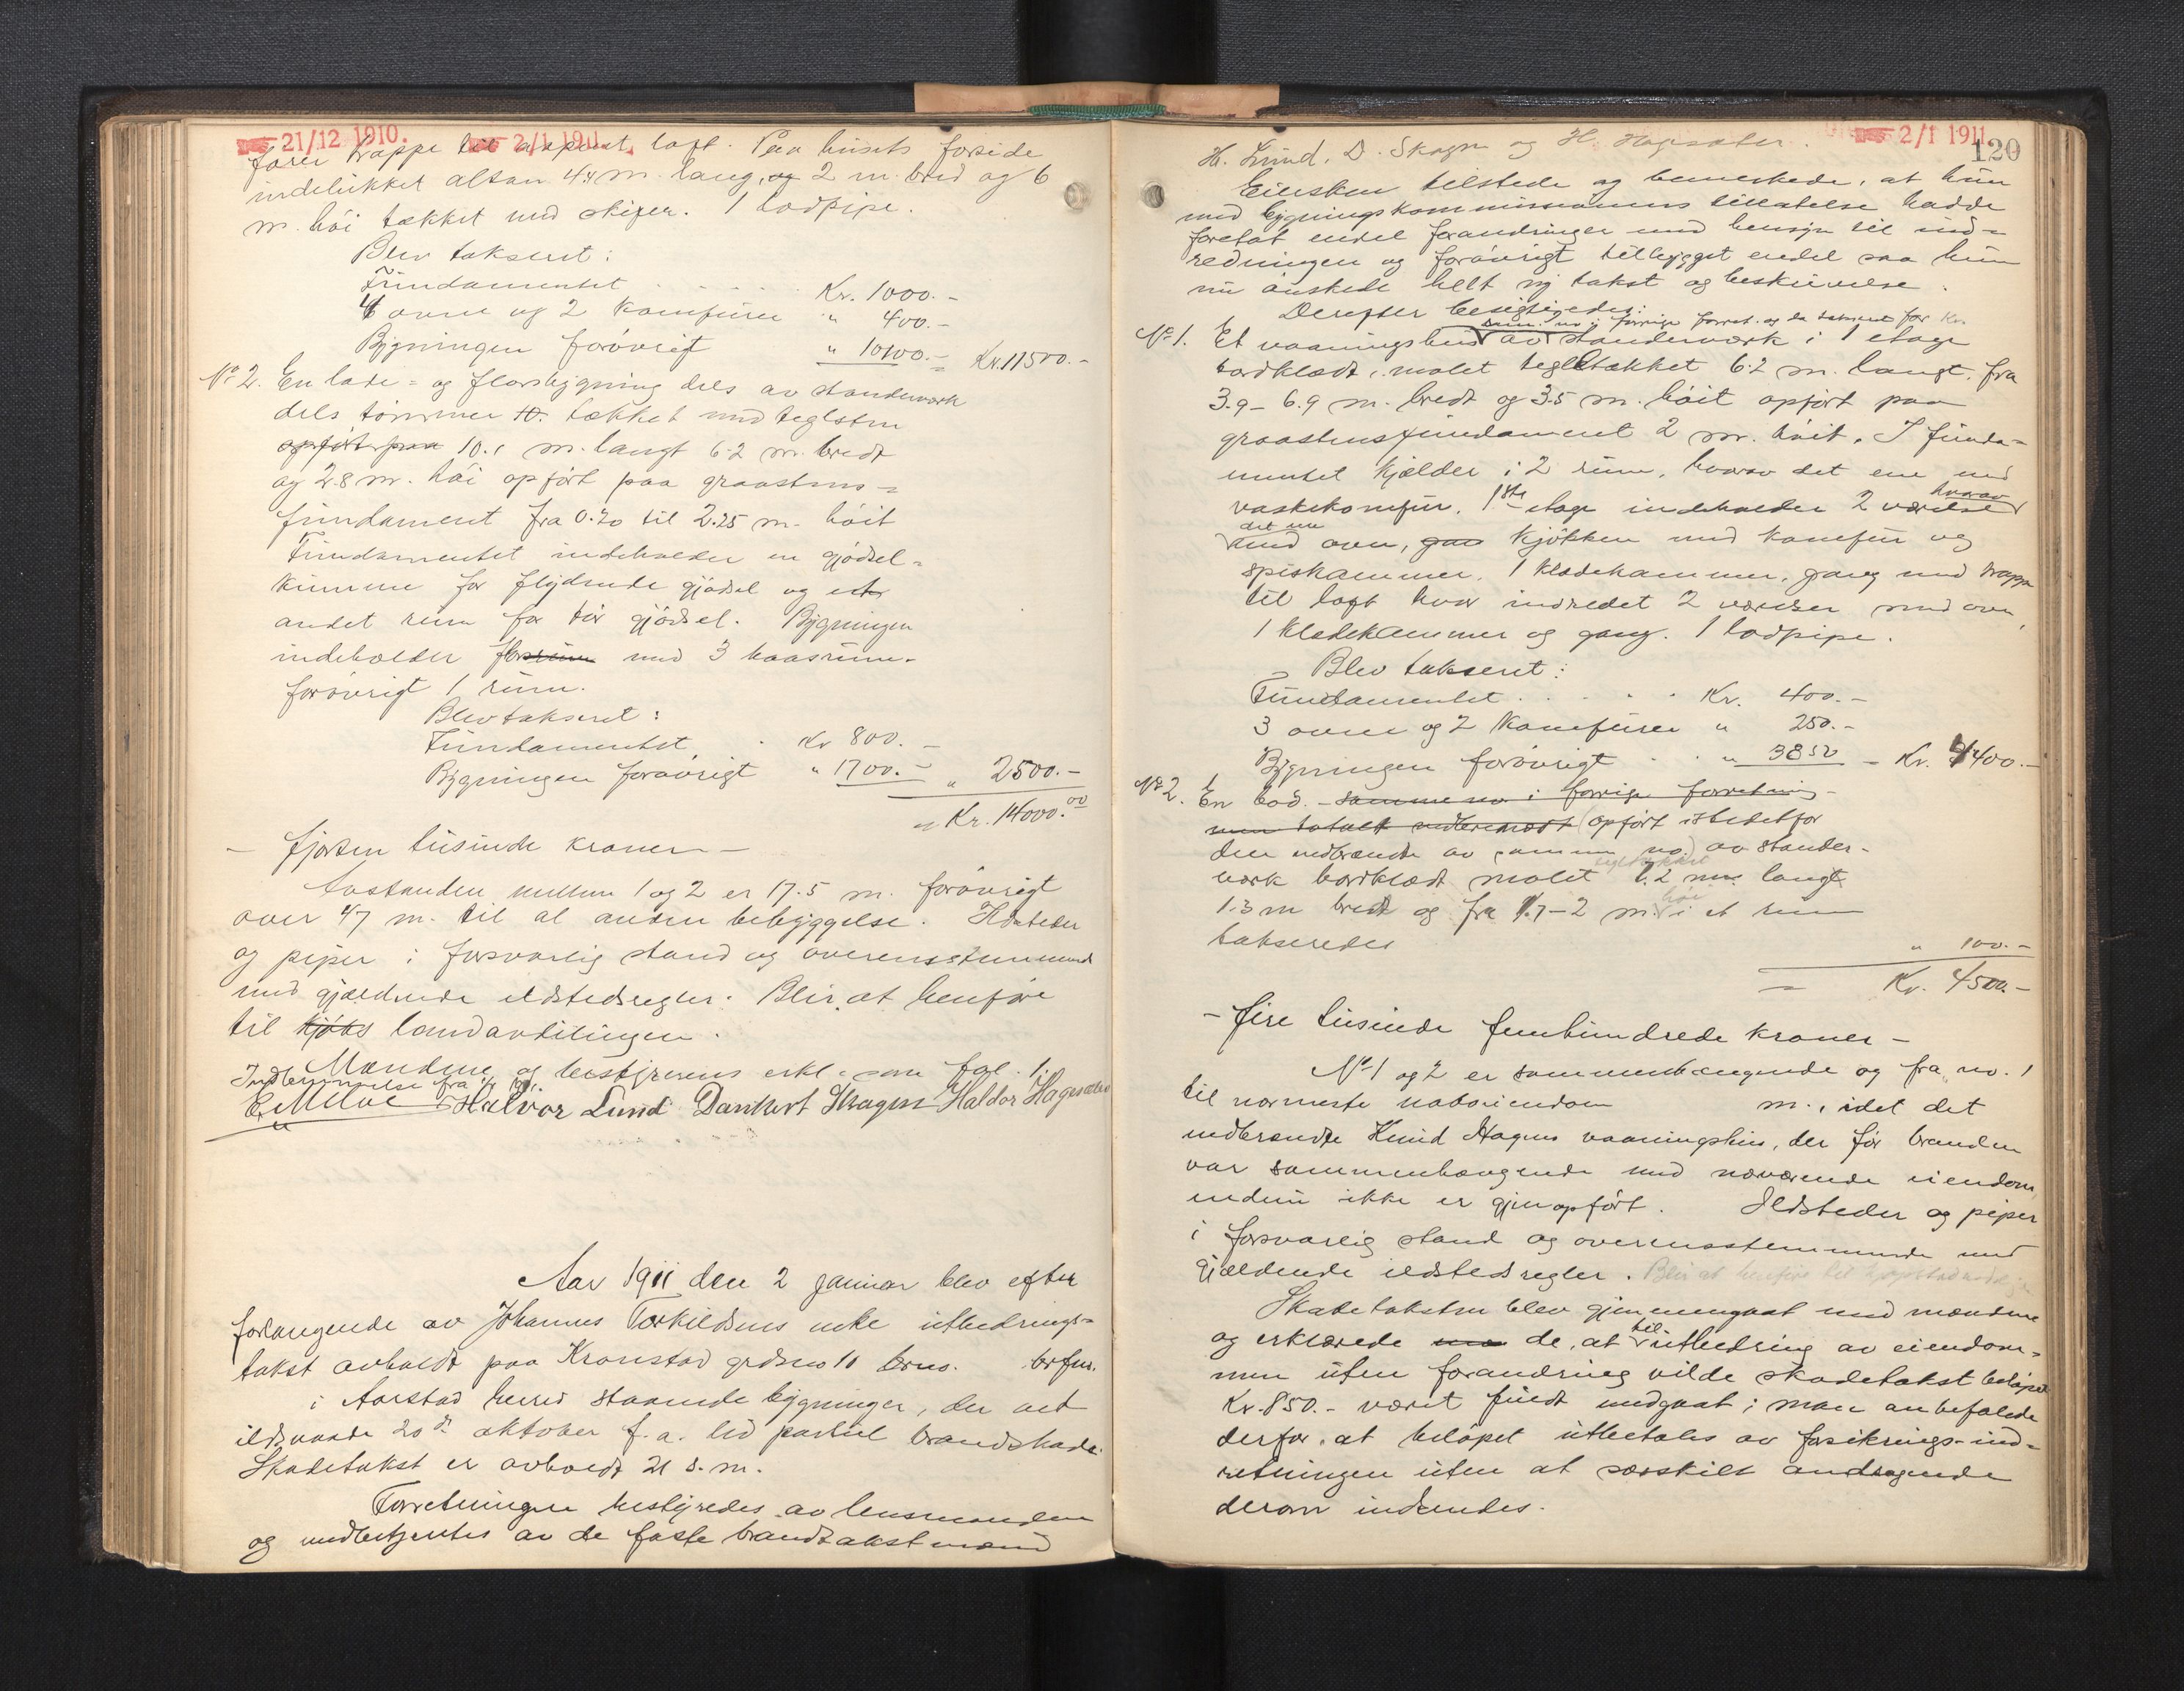 21/12 1910. 2/1 1911.
fører trappe til uspent loft. Paa husets forside
indelukket altan 4.4 m. lang, og 2 m. bred og 6
m. høi tækket med skifer. 1 lodpipe.
Blev takseret:
Fundamentet . . . . . Kr. 1000.-
4 ovne og 2 komfurer " 400.-
Bygningen forøvrigt " 10100.- = Kr. 11500.-
No 2. En lade- og florsbygning dels av standerværk
dels tømmer tækket med teglsten
opført paa 10.1 m. langt 6.2 m. bredt
og 2.8 m. høi opført paa graastens=
fundament fra 0.20 til 2.25 m. høit
Fundamentet indeholder en gjødsel=
kumme for flydende gjødsel og et
andet rum for tør gjødsel. Bygningen
indeholder flor med 3 baasrum.
forøvrigt 1 rum.
Blev takseret:
Fundamentet . Kr 800. -
Bygningen forøvrigt " 1700.- " 2500.-
= Kr. 14000.00
- fjorten tusinde kroner -
Avstanden mellem 1 og 2 er 17.5 m. forøvrigt
over 47 m. til al anden bebyggelse. Ildsteder
og piper i forsvarlig stand og overensstemmende
med gjældende ildstedsregler. Blir at henføre
til kjøbs landavdelingen.
Mændene og bestyrerens erkl. som fol. 1.
Indlemmelse fra 1/1 1911.
Halvor Lund Dankert Skagen Haldor Hagesæter
Aar 1911 den 2 januar blev efter
forlangende av Johannes Torkildsens enke utbedrings=
takst avholdt paa Kronstad grdsno 10 brno. brfnr.
i Aarstad herred staaende bygninger, der ved
ildsvaade 20de oktober f. a. led partiel brandskade.
Skadetakst er avholdt 21 s. m.
Forretningen bestyredes av lensmanden
og medbetjentes av de faste brandtakstmænd
2/1 1911
120
H. Lund, D. Skagen og H. Hagesæter.
Eiersken tilstede og bemerkede, at hun
med bygningskommissionens tillatelse hadde
foretat endel forandringer med hensyn til ind=
redningen og forøvrigt tilbygget endel saa hun
nu ønskede helt ny takst og beskrivelse.
Derefter besigtigedes:
sam. no i forrige forret. og da takseret for Kr.
No 1. Et vaaningshus av standerværk i 1 etage
bordklædt, malet teglstækket 6.2 m. langt, fra
3.9 - 6.9 m. bredt og 3.5 m. høit opført paa
graastensfundament 2 m. høit. I funda=
mentet kjælder i 2 rum, hvorav det ene med
vaskekomfur. 1ste etage indeholder 2 værelser hvorav
det ene
med ovn, gan kjøkken med komfur og
spiskammer, 1 klædekammer, gang med trappe
til loft hvor indredet 2 værelser med ovn,
1 klædekammer og gang. 1 lodpipe.
Blev takseret:
Fundamentet . . . . Kr. 400.-
3 ovne og 2 komfurer " 250.-
Bygningen forøvrigt . . " 3850 - Kr. 4400.-
No 2. En bod. - samme no i forrige forretning -
men totalt nedbrændt (opført istedetfor
den nedbrændte av samme no.) av stander-
værk bordklædt malet teglstækket 7.2 m. langt
1.3 m bredt og fra 1.7 - 2 m. høi i et rum
takseredes " 100.-
= Kr. 4500.-
- fire tusinde femhundrede kroner -
No 1 og 2 er sammenhængende og fra no. 1
til nærmeste naboeiendom m., idet det
nedbrændte Knud Hagens vaaningshus, der før branden
var sammenhængende med nærværende eiendom,
endnu ikke er gjenopført. Ildsteder og piper
i forsvarlig stand og overensstemmende med
gjældende ildstedsregler. Blir at henføre til
Skadetaksten blev gjennemgaat med mændene
og erklærede de, at til utbedring av eiendom=
men uten forandring vilde skadetakst beløpet
Kr. 850.- været fuldt medgaat; man anbefalede
derfor, at beløpet utbetales av forsikrings-ind=
retningen uten at særskilt andragende
derom indsendes.